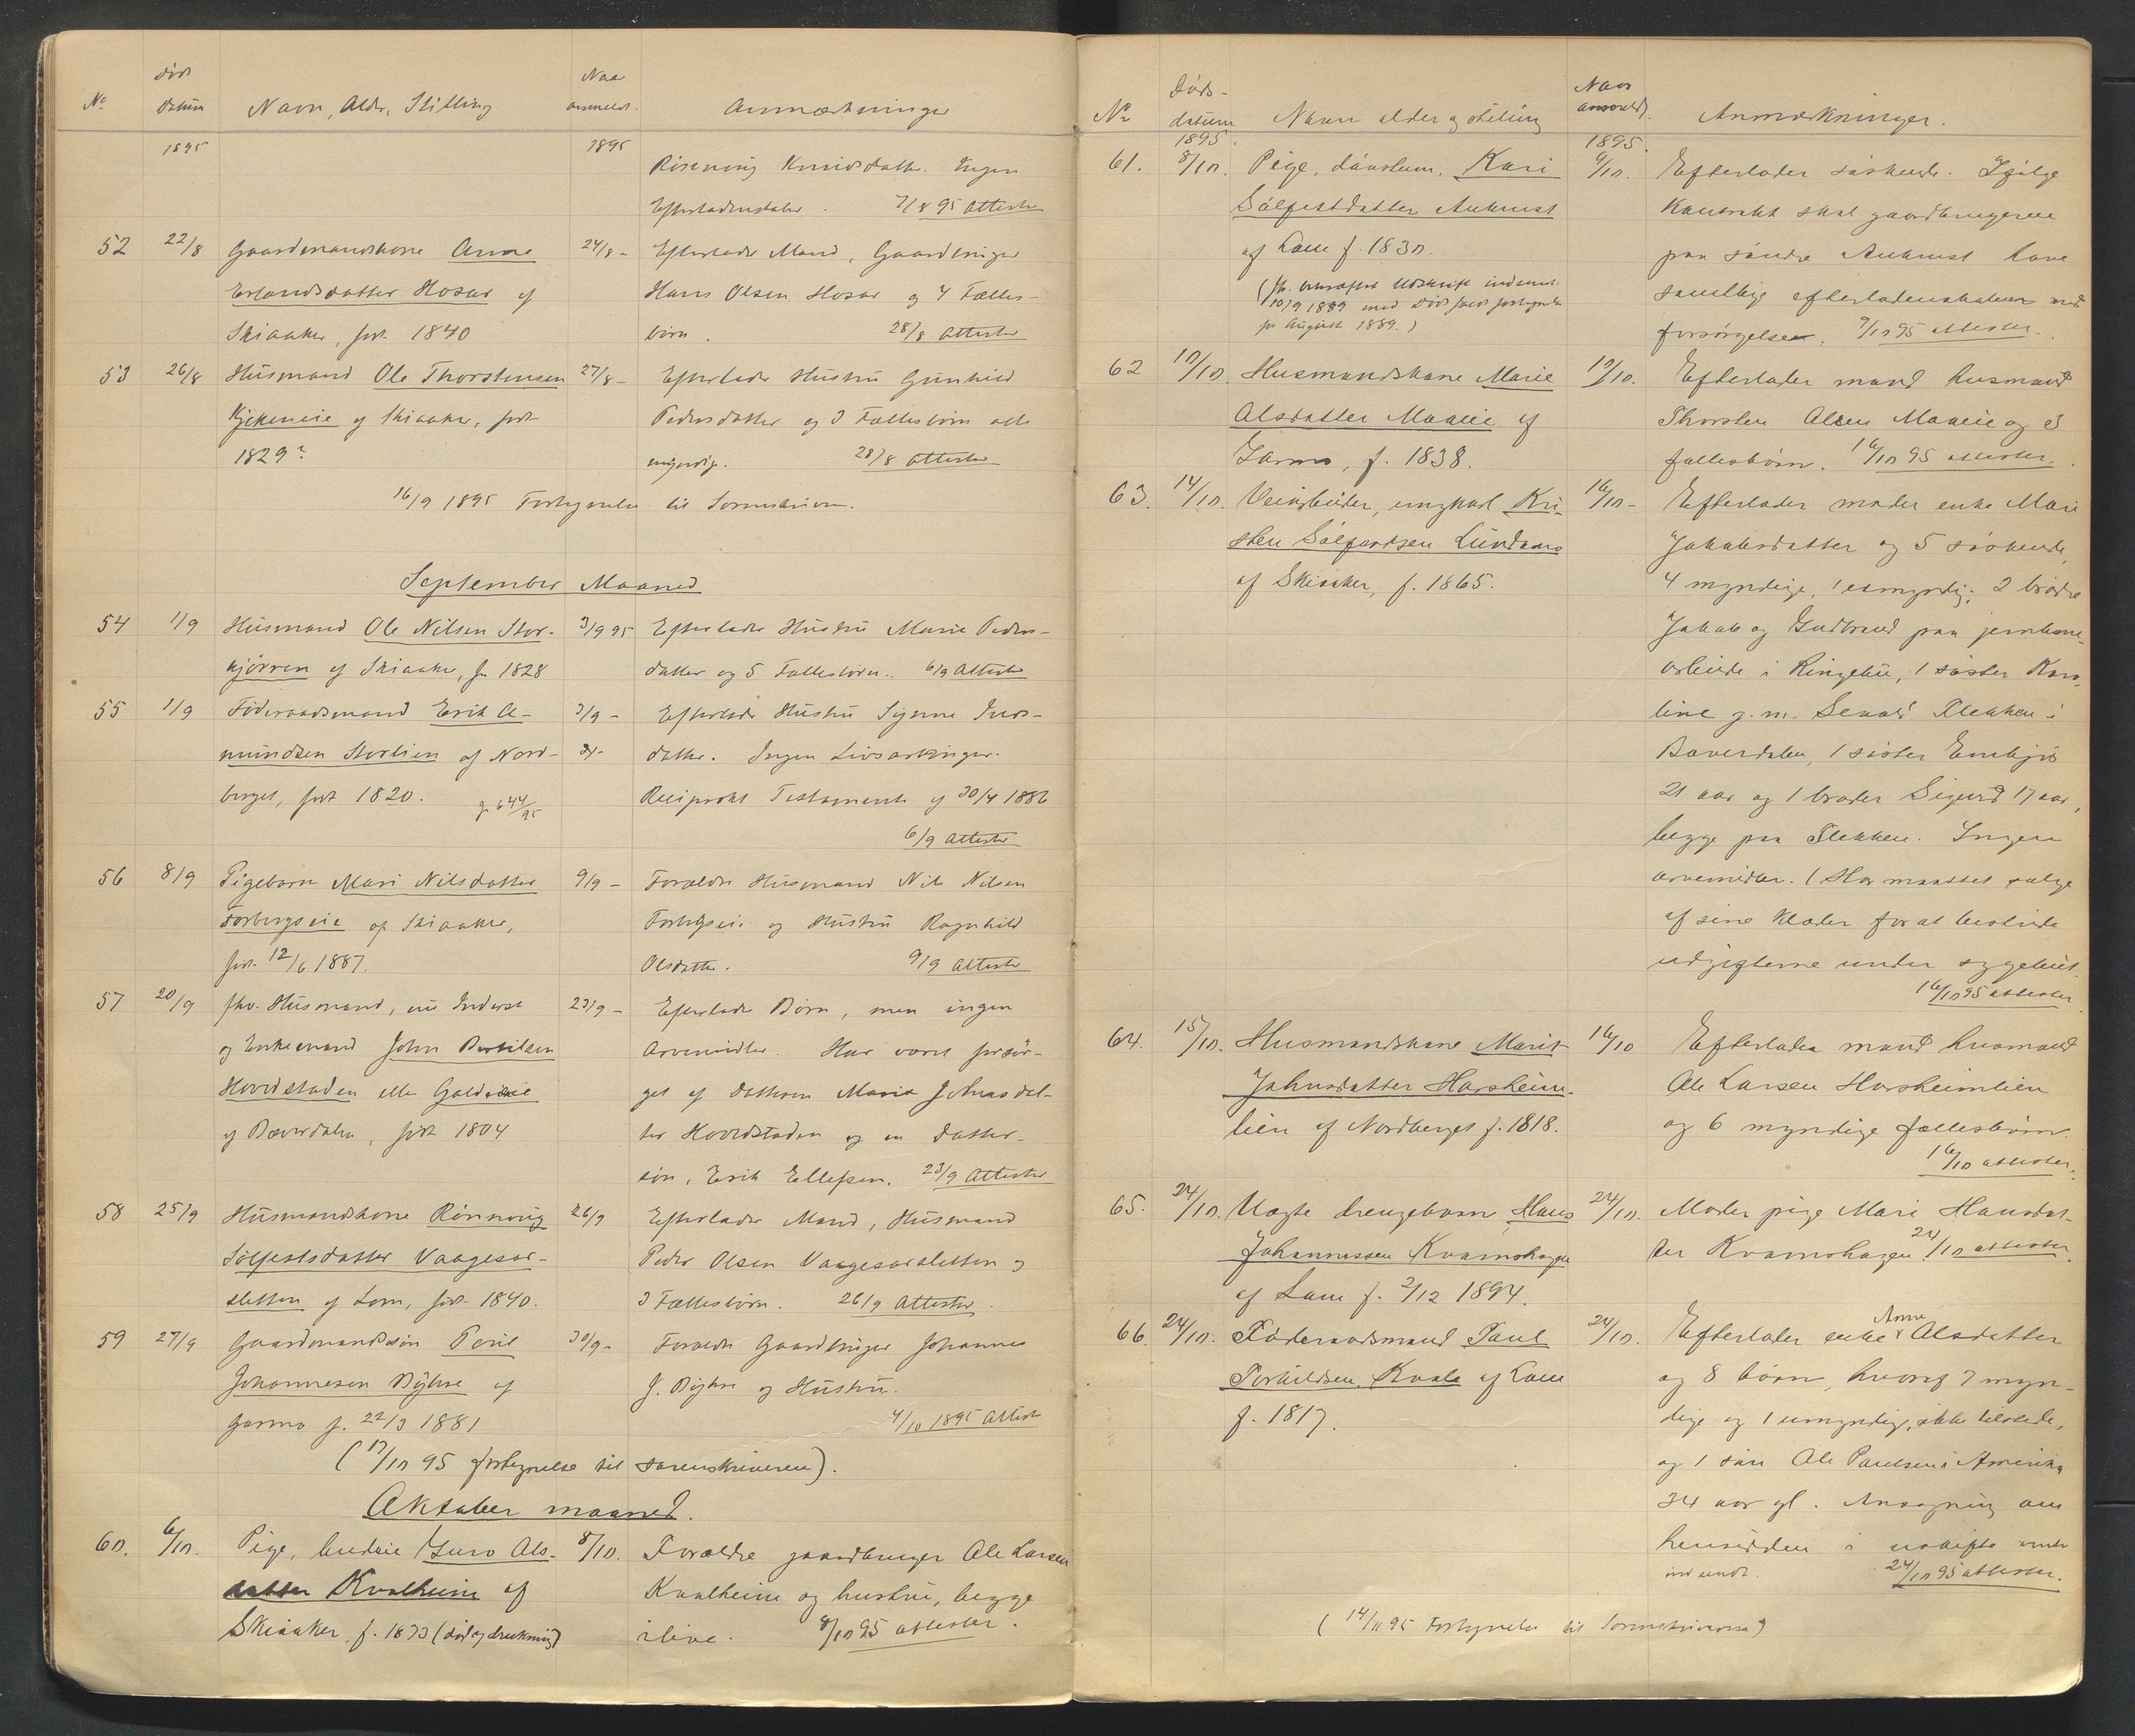 No
Død
datum
Navn, Alder, Stilling
Naa
anmeldt.
Anmærkninger
1895
1895
Rönnoug Knudsdatter. Ingen
Efterladenskaber. 7/8 95 attester
52 22/8 Gaardmandskone Anne 24/8 - Efterlader Mand, Gaardbruger
Erlandsdatter Hosar af Hans Olsen Hosar og 4 Fælles-
Skiaaker, født 1840 börn. 28/8 attester
53 26/8 Husmand Ole Thorstensen 27/8 - Efterlader Hustru Gunhild
Kjekeneie af Skiaaker, født Pedersdatter og 3 Fællesbörn alle
1829? myndige. 28/8 attester
16/9 1895 Fortegnelse til Sorenskriveren.
September Maaned
54 1/9 Husmand Ole Nilsen Stor- 3/9 95 Efterlader Hustru Marie Peders-
kjörren af Skiaaker, f. 1828 datter og 5 Fællesbörn. 6/9 attester
55 1/9 Föderaadsmand Erik A- 3/9 - Efterlader Hustru Signe Ivers-
mundsen Storlien af Nord- datter. Ingen Livsarvinger.
berget, født 1820. Reciprokt Testamente af 30/4 1886
6/9 attester
56 8/9 Pigebarn Mari Nilsdatter 9/9 - Forældre Husmand Nils Nilsen
Forbergseie af Skiaaker, Forbergseie og Hustru Ragnhild
født 12/6 1887. Olsdatter. 9/9 attester
57 20/9 fhv. Husmand, nu Inderst 23/9 - Efterlader Börn, men ingen
og Enkemand John Bertilsen Arvemidler. Har været forsör-
Hovrdstaden eller Galdeseie get af datteren Marit Johnsdat-
af Bæverdalen, født 1804 ter Hovrdstaden og en datter-
sön, Erik Ellefsen. 23/9 attester
58 25/9 Husmandskone Rönnoug 26/9 Efterlader Mand, Husmand
Solfestsdatter Vaagesar- Peder Olsen Vaagesarsletten og
sletten af Lom, født 1840. 3 Fællesbörn. 26/9 attester.
59 27/9 Gaardmandssön Poul 30/9 - Forældre Gaardbruger Johannes
Johannesen Böjhre af J. Böjhre og Hustru.
Garmo f. 22/3 1881 4/10 1895 attester
(17/10 95 fortegnelse til sorenskriveren).
Oktober maaned.
60. 6/10. Pige, budeie Guro Ols- 8/10. Forældre gaardbruger Ole Larsen
datter Kvalheim af Kvalheim og hustru, begge
Skiaaker, f. 1873 (död af drukning) ilive. 8/10 95 attester.
No
Døds-
datum
Navn alder og stilling
Naar
anmeldt.
Anmærkninger.
1895.
1895.
61. 8/10. Pige, dövstum, Kari 9/10. Efterlader söskende. Ifölge
Sölfestdatter Aukrust Kontrakt skal gaardbrugerne
af Lom f. 1830. paa söndre Aukrust have
(fh. bekræftet Udskrift indsendt samtlige efterladenskaber med
10/9 1889 med Dödsfaldsfortegnelse forsörgelsen. 9/10 95 attester.
for August 1889.)
62 10/10. Husmandskone Marie 12/10. Efterlader mand husmand
Olsdatter Maaeie af Thorsten Olsen Maaeie og 3
Garmo, f. 1838. fællesbörn. 16/10 95 attester.
63. 14/10. Veiarbeider, ungkarl Kri- 16/10 - Efterlader moder enke Mari
sten Sölfestsen Lundamo Jakobsdatter og 5 söskende,
af Skiaaker, f. 1865. 4 myndige, 1 umyndig; 2 brödre
Jakob og Gudbrand paa jernbane-
arbeide i Ringebu, 1 söster Karo-
line g. m. Sevald Flekken i
Bæverdalen, 1 söster Embjör
21 aar og 1 broder Sigurd 17 aar,
begge paa Flekken. Ingen
arvemidler. (Har maattet sælge
af sine klæder for at bestride
udgifterne under sygeleiet.
16/10 95 attester
64. 15/10. Husmandskone Marit 16/10 Efterlader mand husmand
Johnsdatter Horsheim- Ole Larsen Horsheimlien
lien af Nordberget f. 1818. og 6 myndige fællesbörn.
16/10 attester.
65. 24/10. Uægte drengebarn Hans 24/10. Moder pige Mari Hansdat-
Johannessen Kvamshagen ter Kvamshagen. 24/10 attester.
af Lom f. 2/12 1894.
66. 24/10. Föderaadsmand Paul 24/10. Efterlader enke Anne Olsdatter
Torkildsen Kvale af Lom og 8 börn, hvoraf 7 myn-
f. 1817. dige og 1 umyndig, ikke tilstede,
og 1 sön Ole Paulsen i Amerika
34 aar gl. Ansögning om
hensidden i uskifte
indsendt. 24/10 95 attester.
(14/11 95 Fortegnelse til Sorenskriveren)